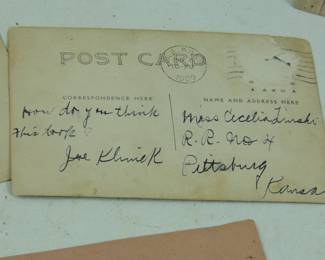 POST CARD
1909
CORRESPONDENCE HERE
NAME AND ADDRESS HERE
How do you think
this looks?
Joe Klimek
Miss Cecelia
R.R. No 4
Pittsburg
Kansa